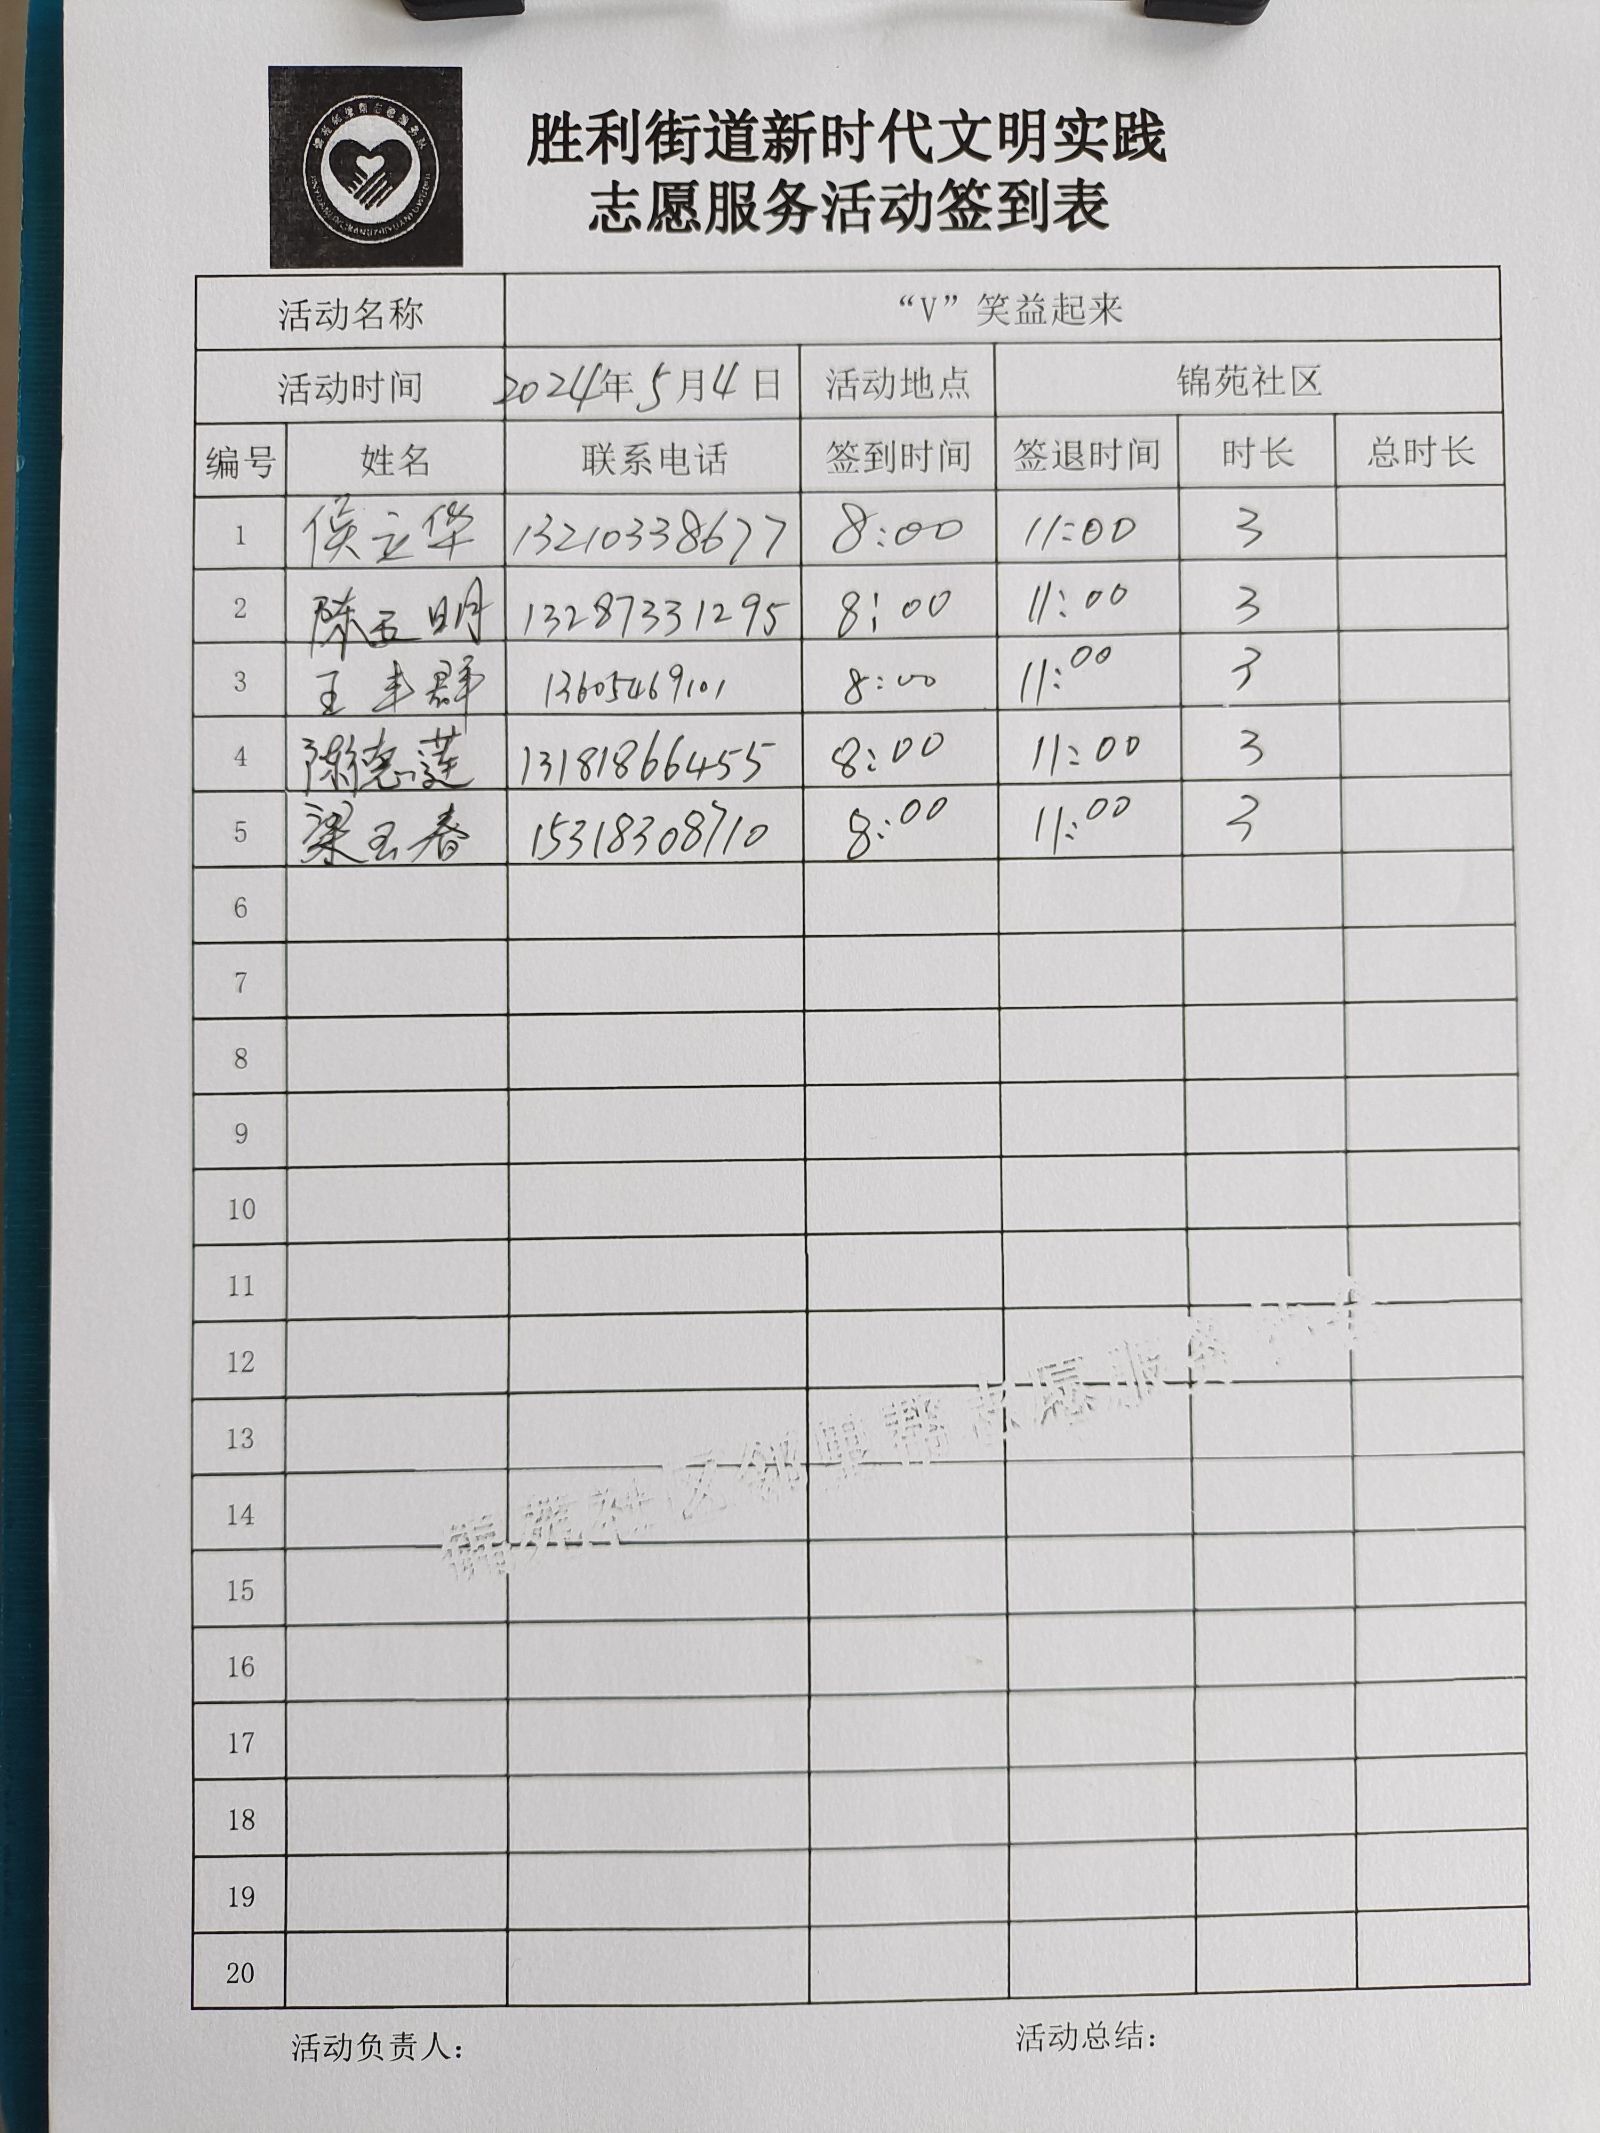 胜利街道新时代文明实践
志愿服务活动签到表
活动名称 “V”笑益起来
活动时间 2024年5月4日 活动地点 锦苑社区
编号 姓名 联系电话 签到时间 签退时间 时长 总时长
1 侯立华 13210338677 8:00 11:00 3
2 陈玉明 13287331295 8:00 11:00 3
3 王丰群 13605469101 8:00 11:00 3
4 陈德莲 13181866455 8:00 11:00 3
5 梁玉春 15318308710 8:00 11:00 3
6
7
8
9
10
11
12
13
14
15
16
17
18
19
20
锦苑社区邻里帮志愿服务
活动负责人：
活动总结：